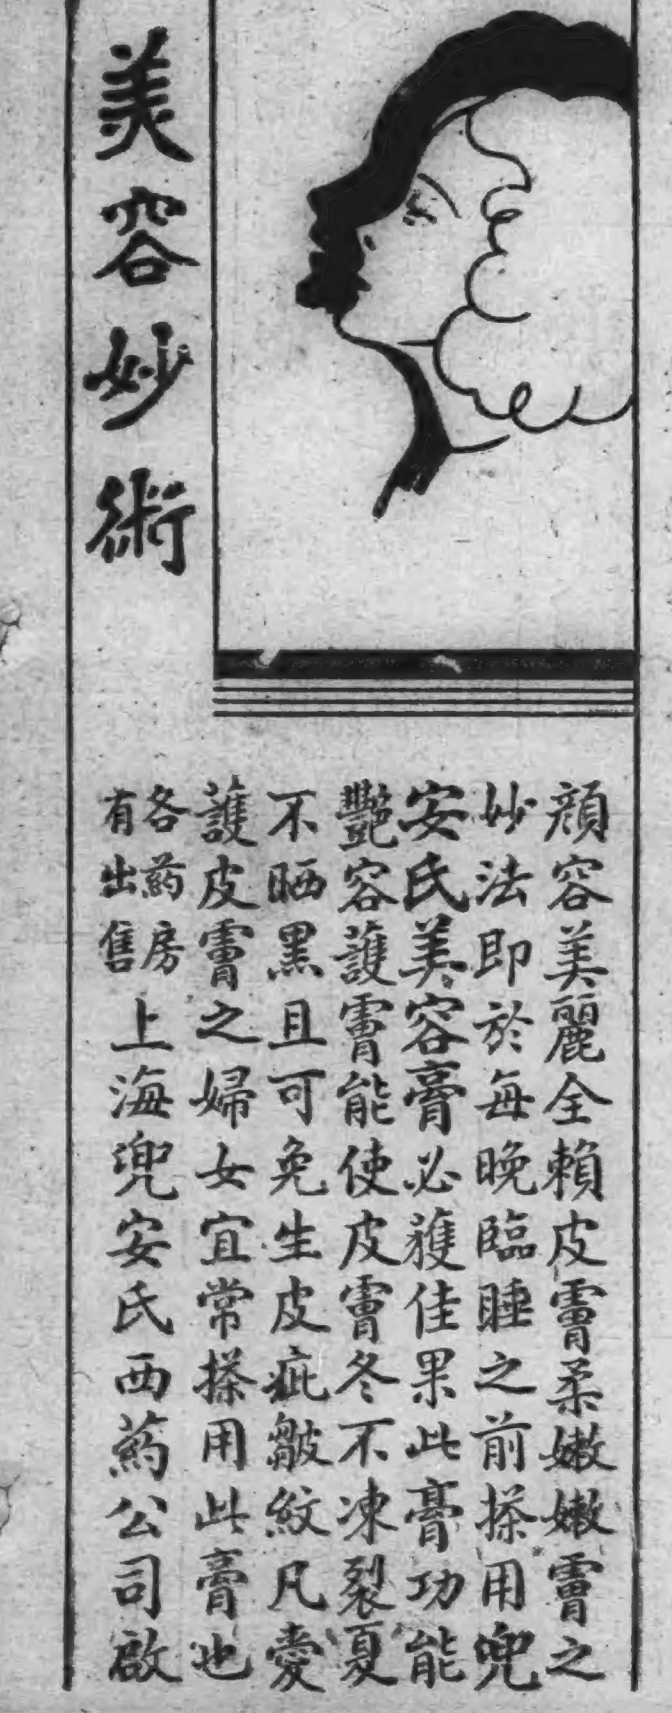 美容妙術
顏容美麗全賴皮膚柔嫩嫩膚之
妙法即於每晚臨睡之前搽用兜
安氏美容膏必獲佳果此膏功能
艷容護膚能使皮膚冬不凍裂夏
不晒黑且可免生皮疵皺紋凡愛
護皮膚之婦女宜常搽用此膏也
各藥房
有出售
上海兜安氏西藥公司啟